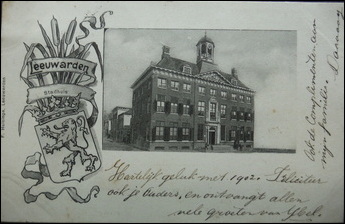 Leeuwarden
Stadhuis
Hartelijk geluk met 1902. Feliciteer
ook je ouders, en ontvangt allen
vele groeten van
Ook de Complimenten aan
mijn familie